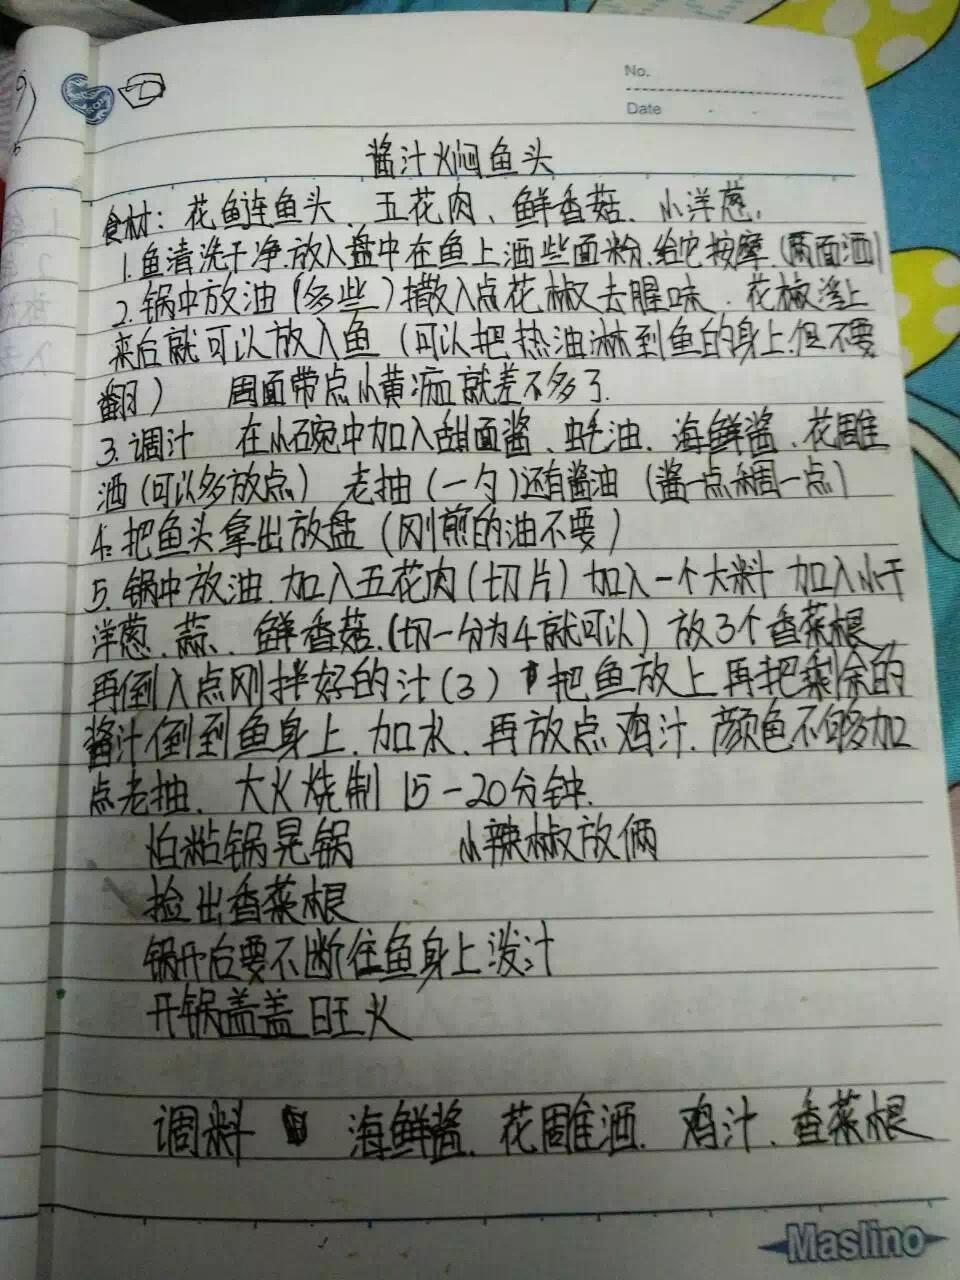 No.
Date
酱汁焖鱼头
食材：花鲢鱼头、五花肉、鲜香菇、小洋葱.
1.鱼清洗干净.放入盘中在鱼上洒些面粉.给它按摩（两面洒）
2.锅中放油（多些）撒入点花椒去腥味.花椒浮上
来后就可以放入鱼（可以把热油淋到鱼的身上.但不要
翻） 周面带点小黄痂就差不多了.
3.调汁 在小碗中加入甜面酱、蚝油、海鲜酱、花雕
酒（可以多放点） 老抽（一勺）还有酱油（酱一点稠一点）
4.把鱼头拿出放盘（刚煎的油不要）
5.锅中放油.加入五花肉（切片）加入一个大料 加入小干
洋葱、蒜、鲜香菇.（切一分为4就可以）放3个香菜根
再倒入点刚拌好的汁（3）把鱼放上再把剩余的
酱汁倒到鱼身上.加水.再放点鸡汁.颜色不够加
点老抽.大火烧制15-20分钟.
怕粘锅晃锅 小辣椒放俩
捡出香菜根
锅开后要不断往鱼身上泼汁
开锅盖盖 旺火
调料 海鲜酱.花雕酒.鸡汁.香菜根
Maslino